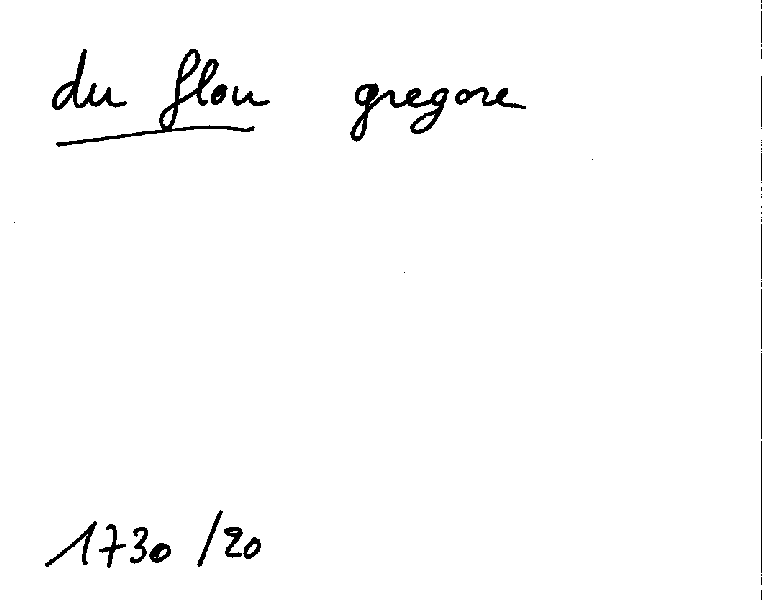 du flou gregore
1730 /20